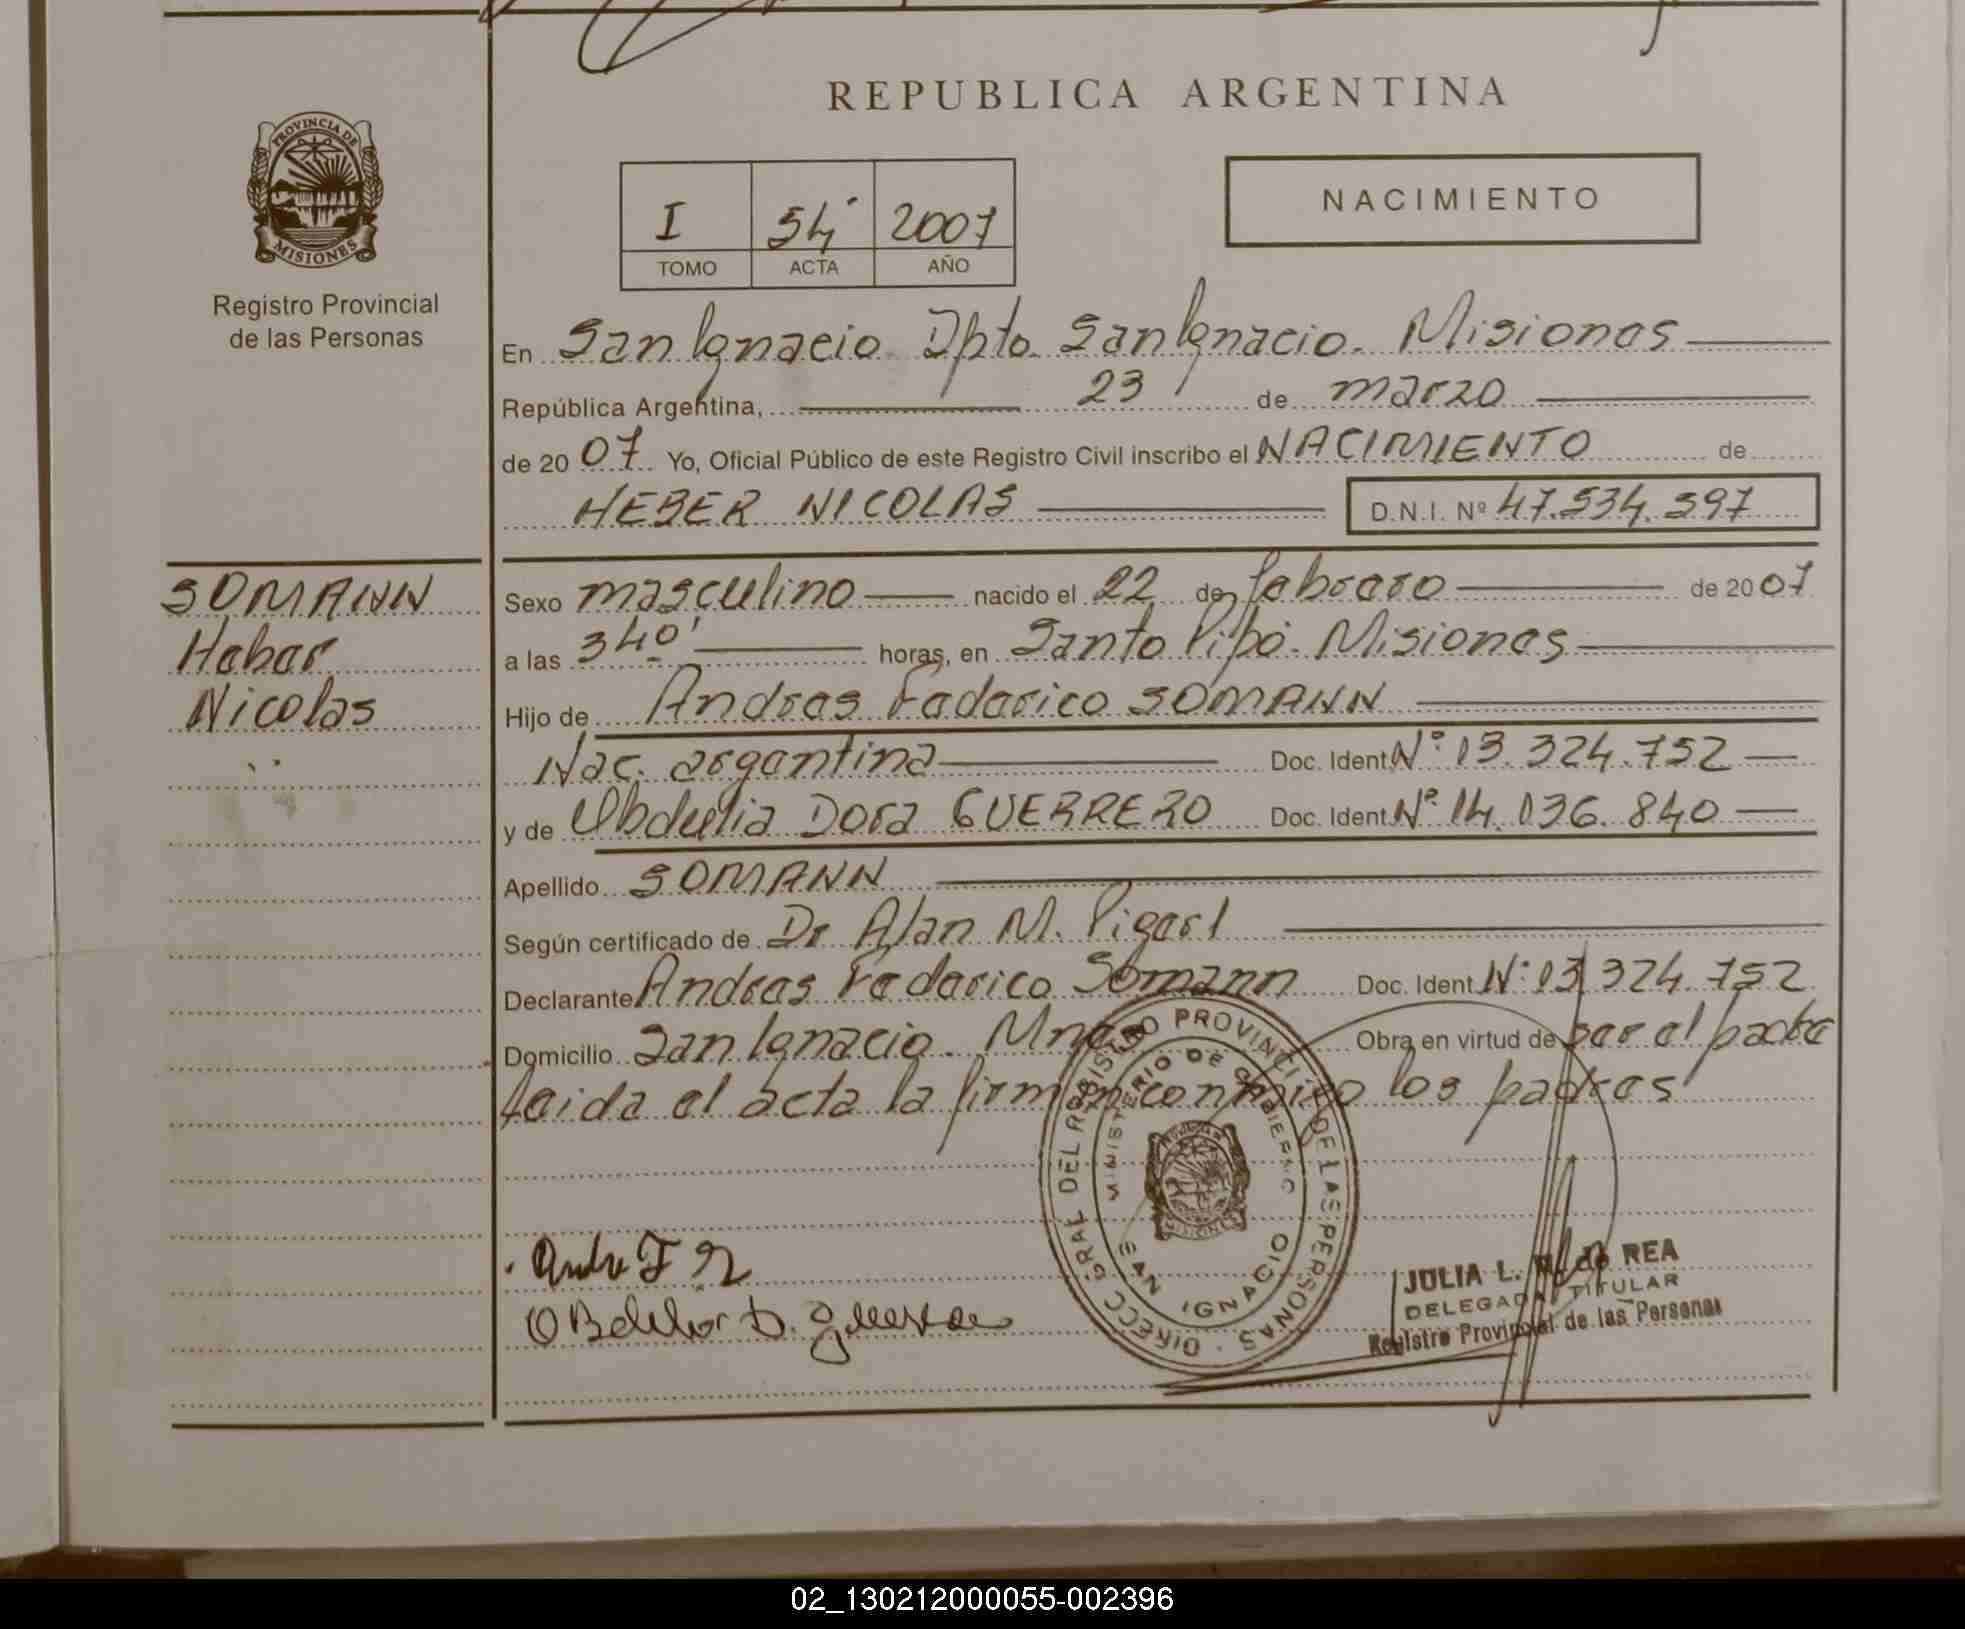 REPUBLICA ARGENTINA
PROVINCIA DE
MISIONES
Registro Provincial
de las Personas
I 54 2007
TOMO ACTA AÑO
NACIMIENTO
En San Ignacio Dpto. San Ignacio. Misiones
República Argentina, 23 de marzo
de 20 07 Yo, Oficial Público de este Registro Civil inscribo el NACIMIENTO de
HEBER NICOLAS D.N.I. Nº 47.534.597
SOMANN
Heber
Nicolas
Sexo masculino nacido el 22 de febrero de 20 07
a las 340' horas, en Santo Pipó. Misiones
Hijo de Andres Federico SOMANN
Nac. argentina Doc. Ident. Nº 13.324.752
y de Obdulia Dora GUERRERO Doc. Ident. Nº 14.036.840
Apellido SOMANN
Según certificado de Dr Alan M.
Declarante Andres Federico Somann Doc. Ident. Nº 13.324.752
Domicilio San Ignacio. Mnes Obra en virtud de ser el padre
leida el acta la firman conmigo los padres
DIRECC. GRAL DEL REGISTRO PROVINCIAL DE LAS PERSONAS
MINISTERIO DE GOBIERNO
MISIONES
SAN IGNACIO
JULIA L. de REA
DELEGADA TITULAR
Registro Provincial de las Personas
02_130212000055-002396